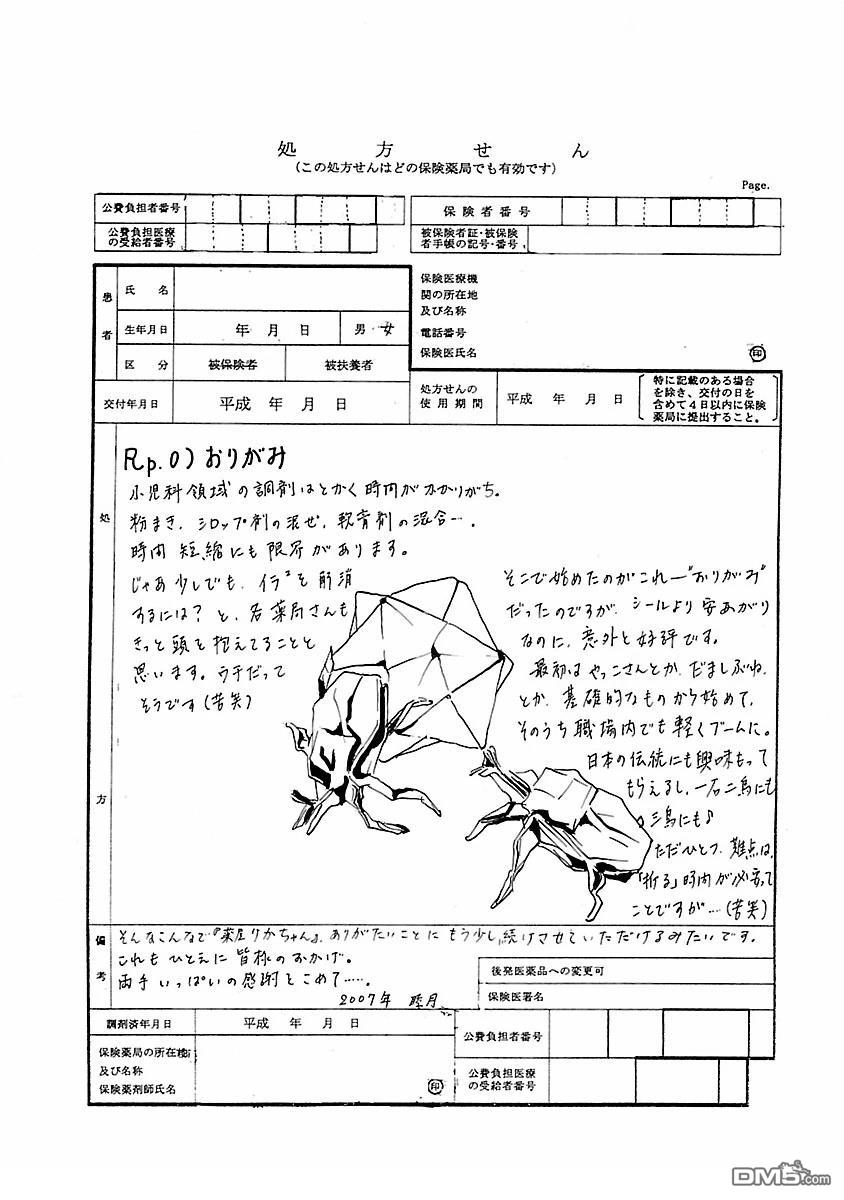 処方せん
(この処方せんはどの保険薬局でも有効です)
Page.
公費負担者番号
保険者番号
公費負担医療
の受給者番号
被保険者証・被保険
者手帳の記号・番号
患者
氏名
生年月日
年 月 日
男・女
区分
被保険者
被扶養者
保険医療機
関の所在地
及び名称
電話番号
保険医氏名
印
交付年月日
平成 年 月 日
処方せんの
使用期間
平成 年 月 日
特に記載のある場合
を除き、交付の日を
含めて4日以内に保険
薬局に提出すること。
処方
Rp.0)おりがみ
小児科領域の調剤はとかく時間がかかりがち。
粉まき、シロップ剤の混ぜ、軟膏剤の混合…。
時間短縮にも限界があります。
じゃあ少しでも、イライラを解消
するには?と、各薬局さんも
きっと頭を抱えてることと
思います。ウチだって
そうです(苦笑)
そこで始めたのがこれ―"おりがみ"
だったのですが、シールより安あがり
なのに、意外と好評です。
最初はやっこさんとか、だましぶね、
とか、基礎的なものから始めて、
そのうち職場内でも軽くブームに。
日本の伝統にも興味もって
もらえるし、一石二鳥にも
三鳥にも♪
ただひとつ、難点は、
「折る」時間が必要って
ことですが…(苦笑)
備考
そんなこんなで『薬屋りかちゃん』、ありがたいことにもう少し続けさせていただけるみたいです。
これもひとえに皆様のおかげ。
両手いっぱいの感謝をこめて……。
2007年 睦月
後発医薬品への変更可
保険医署名
調剤済年月日
平成 年 月 日
公費負担者番号
保険薬局の所在地
及び名称
保険薬剤師氏名
印
公費負担医療
の受給者番号
DM5.com